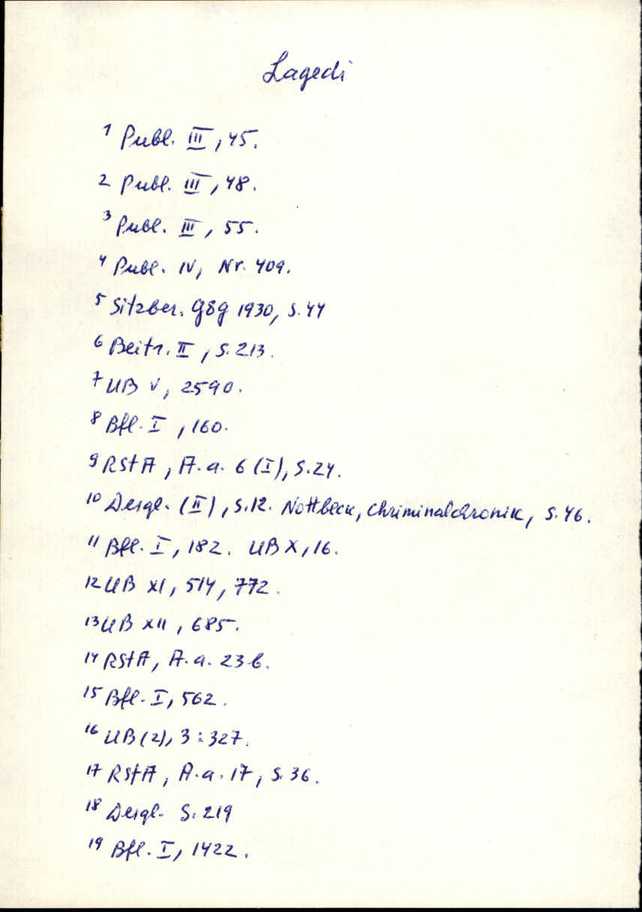 Lagedi
1 Publ. III, 45.
2 Publ. III, 48.
3 Publ. III, 55.
4 Publ. IV, Nr. 409.
5 Sitzber. GEG 1930, S. 44
6 Beitr. II, S. 213.
7 UB V, 2590.
8 Bfl. I, 160.
9 RStA, A.a. 6 (I), S. 24.
10 Desgl. (II), S. 12. Nottbeck, Chriminalchronik, S. 46.
11 Bfl. I, 182. UB X, 16.
12 UB XI, 514, 772.
13 UB XII, 685.
14 RStA, A.a. 23 b.
15 Bfl. I, 562.
16 UB (2), 3:327.
17 RStA, A.a. 17, S. 36.
18 Desgl. S. 219
19 Bfl. I, 1422.